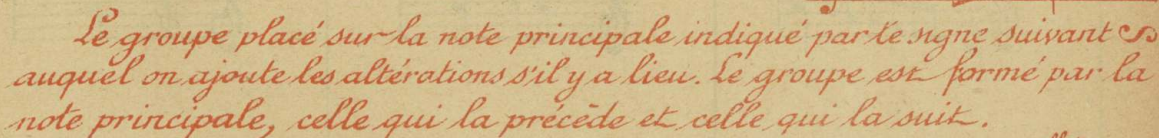 Le groupe placé sur la note principale indiqué par le signe suivant ∽
auquel on ajoute les altérations s'il y a lieu. Le groupe est formé par la
note principale, celle qui la précède et celle qui la suit.